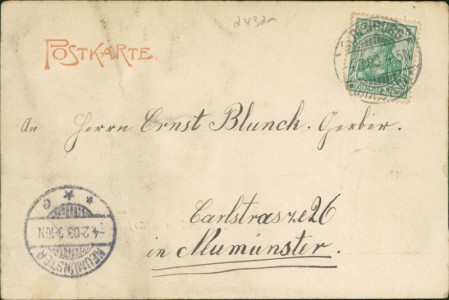 2432n
POSTKARTE
An Herrn Ernst Blunck. Gerber.
Carlstrasze 26
in Neumünster.
NEUMÜNSTER
-4.2.03.9-10N.
* * e